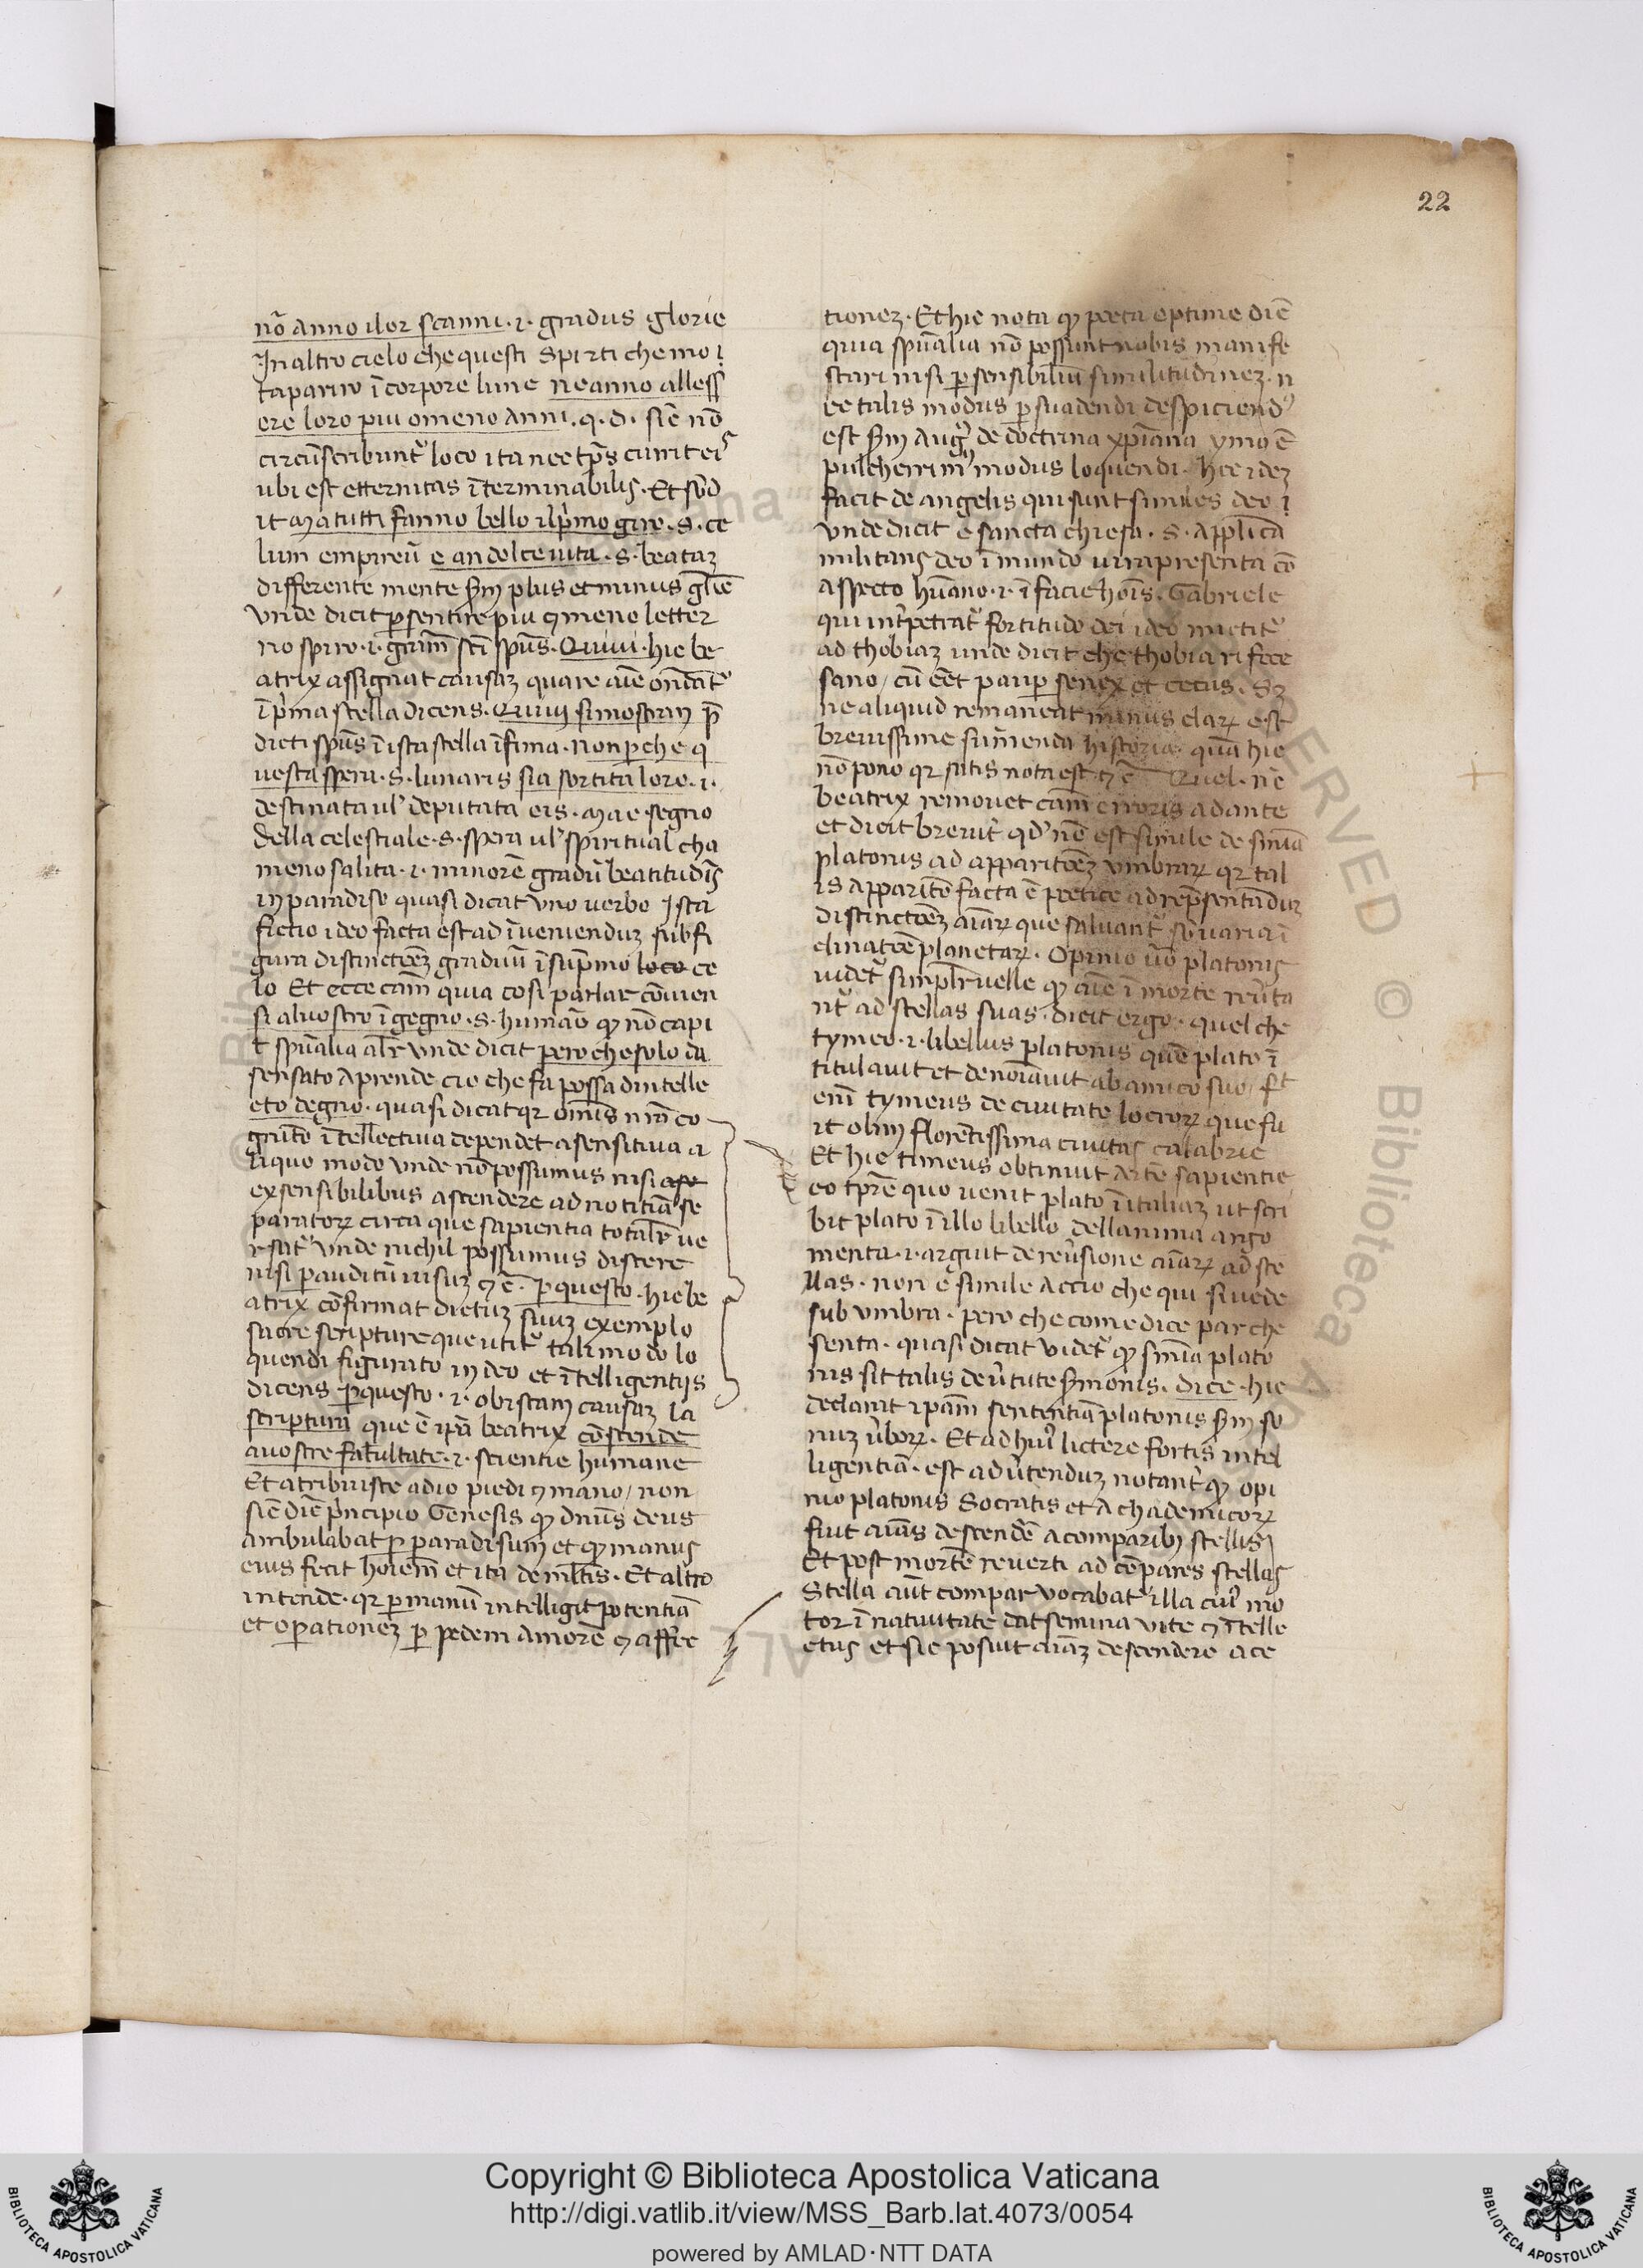 22
nō anno ilor scanni · i · gradus glorie
In altro cielo che questi spirti che mo i
taparīro ī corpore lune ne anno alless
ere loro piu omeno anni · q · d · siē nō
circūscribunt᷑ loco ita nec tp̄s currit eiˢ
ubi est etternitas īterminabilis · Et s̄bd
it Ma tutti fanno bello il pͥmo giro · s · ce
lum empireū e an dolce vita · s · beataʒ
differente mente s̄m plus et minus gl̄ie
vnde dicit p̱ sentire piu ꝯ meno letter
no spiro · i · grām sc̄i spūs · Quiui · hic be
atrix assignat causaʒ quare aīe ondāt᷑
ī pͥma stella dicens · Quiui si mostrarō p̄
dicti spūs ī ista stella īfima · non p̱che q
uesta spera · s · lunaris sia sortita loro · i ·
destinata ul̓ deputata eis · Ma e segno
della celestiale · s · spera ul̓ spiritual cha
meno salita · i · minorē gradū beatitudīs
in paradiso quasi dicat vno uerbo Ista
fictio ideo facta est ad īueniendūʒ sub fi
gura distinctōeʒ graduū ī supͥmo loco ce
lo Et ecce cām quia cosi parlar cōuien
si aluostro īgegno · s · humāo qꝫ nō capi
t̄ spūalia al̄r vnde dicit pero che solo da
sensato aprende cio che fa possa dintelle
cto degno · quasi dicat qꝛ om̄is nr̄a co
gnitō ītellectiua dependet asensitiua a
liquo modo vnde nō possumus nisi
ex sensibilibus ascendere ad notitiā se
paratoꝝ circa que sapientia totalr̄ ue
rsat᷑ vnde nichil possumus discere
nisi p̱ auditū uisuʒ ꝯ c̄ · p̱ questo · hic be
atrix cōfirmat dictuʒ suuʒ exemplo
sacre scripture que utit᷑ tali modo lo
quendi figurato in deo et ītelligentijs
dicens p̱ questo · i · ob istam causaʒ la
scriptura que ē ip̄a beatrix cōscende
a uostre facultate · i · scientie humane
Et atribuisce adio piedi ꝯ mano / non
siē diē pͥncipio Genesis qꝫ dn̄us deus
ambulabat p̱ paradisum et qꝫ manus
eius fecit hoīem et ita de ml̄tis · Et altro
intende · qꝛ p̱ manū intelligit potentiā
et op̱ationeʒ p̱ pedem amorē ꝯ affec
tioneʒ · Et hic nota qꝫ poeta optime diē
quia spūalia nō possunt nobis manife
stari nisi p̱ sensibiliū similitudineʒ · n
ec talis modus p̱suadendi despiciendˀ
est s̄m Augᷣ de doctrina xp̄iana ymo ē
pulcherrimˀ modus loquendi · hic ideʒ
facit de angelis qui sunt similes deo i
vnde dicit e sancta chiesa · s · applicā
militans deo ī mundo ui rapresenta cō
aspecto hūano · i · ī facie hoīs · Gabriele
qui int̓petrat᷑ fortitudo dei ideo mictit᷑
ad thobiaʒ unde dicit che thobia ri fece
sano / cū eēt paup̱ senex et cecus · Sʒ
ne aliquid remaneat minus claꝝ est
breuissime sumenda historia quā hic
nō pono qꝛ satis nota est ꝯ c̄ Quel · nē
beatrix remouet cām erroris a dante
et dicit breuit̓ qdˀ nō est simile de snīa
platonis ad apparitōeʒ vmbraꝝ qꝛ tal
is apparitō facta ē poetice ad rep̄sentāduʒ
distinctōeʒ aīaꝝ que saluant᷑ s̄m uaria ī
clinatōē planetaꝝ · Opinio uō platonis
uidet᷑ simpl̄r uelle qꝫ aīe ī morte reu̓ta
nt᷑ ad stellas suas · dicit ergo · quel che
tymeo · i · libellus platonis quē plato ī
titulauit et denoīauit ab amico suo / f̄t
enī tymeus de ciuitate locroꝝ que fu
it olim florētissima ciuitas calabrie
Et hic timeus obtinuit artē sapientie
eo tp̄re quo uenit plato ī italiaʒ ut scri
bit plato ī illo libello dellanima argo
menta · i · arguit de reu̓sione aīaꝝ ad ste
llas · non e simile accio che qui si uede
sub vmbra · pero che come dice par che
senta · quasi dicat videt᷑ qꝫ snīa plato
nis sit talis de u̓tute s̄monis · dice · hic
declarat ip̄am sententiā platonis s̄m so
nuʒ u̓boꝝ · Et ad huiˀ lictere fortis intel
ligentiā · est adu̓tenduʒ notant̓ qꝫ opi
nio platonis Socratis et Achademicoꝝ
fuit aīas descendē a comparibꝫ stellis
Et post mortē reuerti ad cōpares stellas
Stella aūt compar vocabat᷑ illa cuiˀ mo
tor ī natiuitate dat semina vite ꝯ ītelle
ctus et sic posuit aīaʒ descendere a ce
Copyright © Biblioteca Apostolica Vaticana
http://digi.vatlib.it/view/MSS_Barb.lat.4073/0054
powered by AMLAD·NTT DATA
BIBLIOTECA APOSTOLICA VATICANA
BIBLIOTECA APOSTOLICA VATICANA